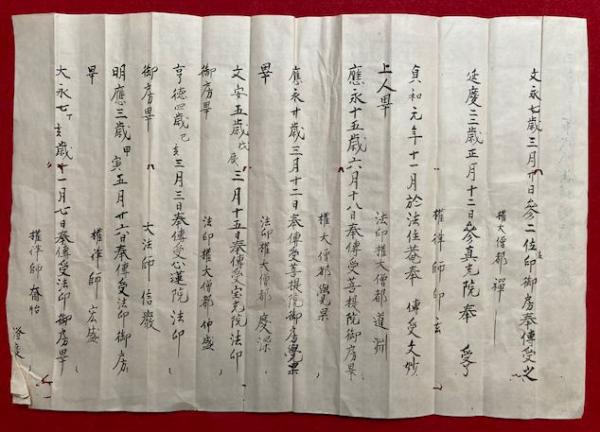 文永七歳三月廿日参二位法印御房奉傳受之
權大僧都禪
延慶三歳正月十二日參真光院奉受了
權律師印玄
貞和元年十一月於法住菴奉傳受文妙
上人畢
法印權大僧都道渊
應永十五歳六月十八日奉傳受菩提院御房畢
權大僧都覺杲
應永廿歳三月十二日奉傳受菩提院御房覺杲
畢
法印權大僧都慶深
文安五歳戊辰三月十五日奉傳受宝光院法印
御房畢
法印權大僧都仲盛
亨徳四歳乙亥三月三日奉傳受心蓮院法印
御房畢
大法師信嚴
明應三歳甲寅五月廿六日奉傳受法印御房
畢
權律師宏盛
大永七丁亥歳十一月七日奉傳受法印御房畢
權律師